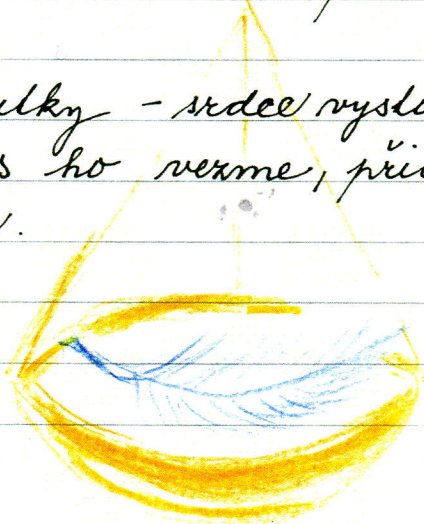 utky - srdce vyslo
s ho vezme, při